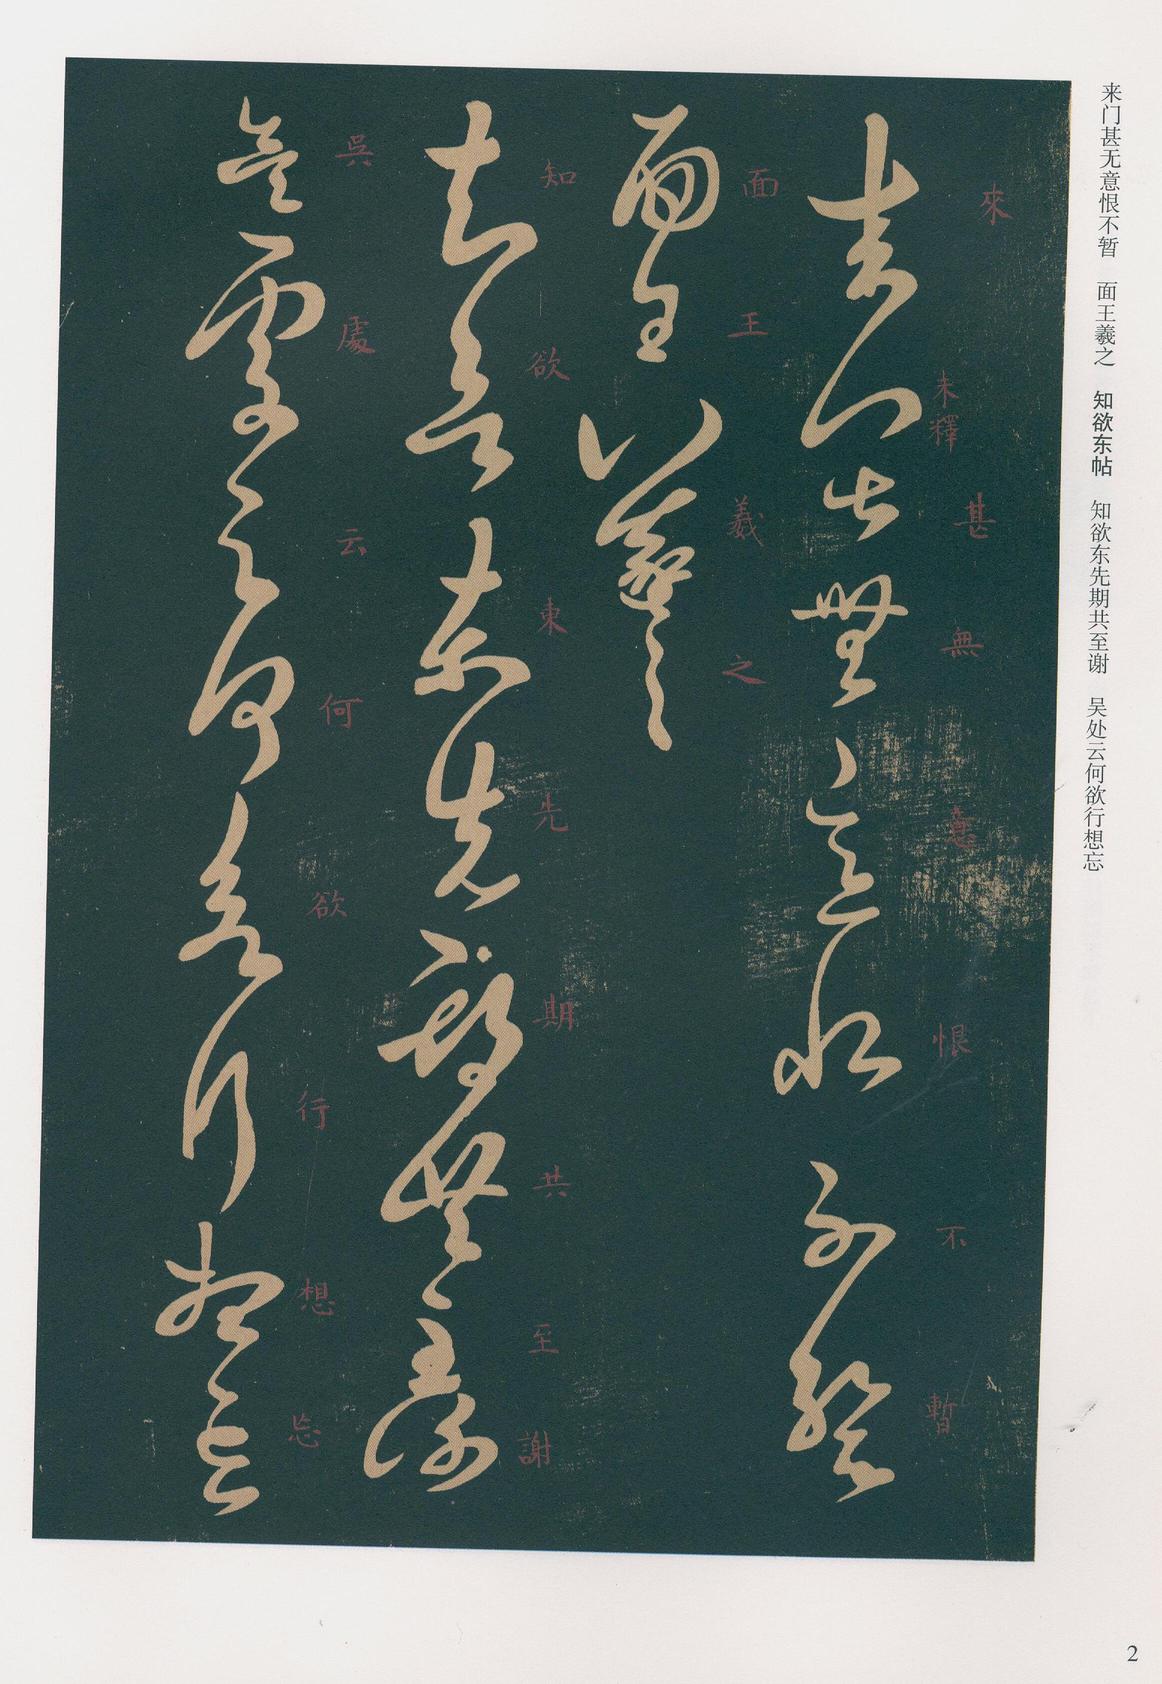 来门甚无意恨不暂 面王羲之 知欲东帖 知欲东先期共至谢 吴处云何欲行想忘
來 未釋 甚 無 意 恨 不 暫
面 王 羲 之
知 欲 東 先 期 共 至 謝
吳 處 云 何 欲 行 想 忘
2